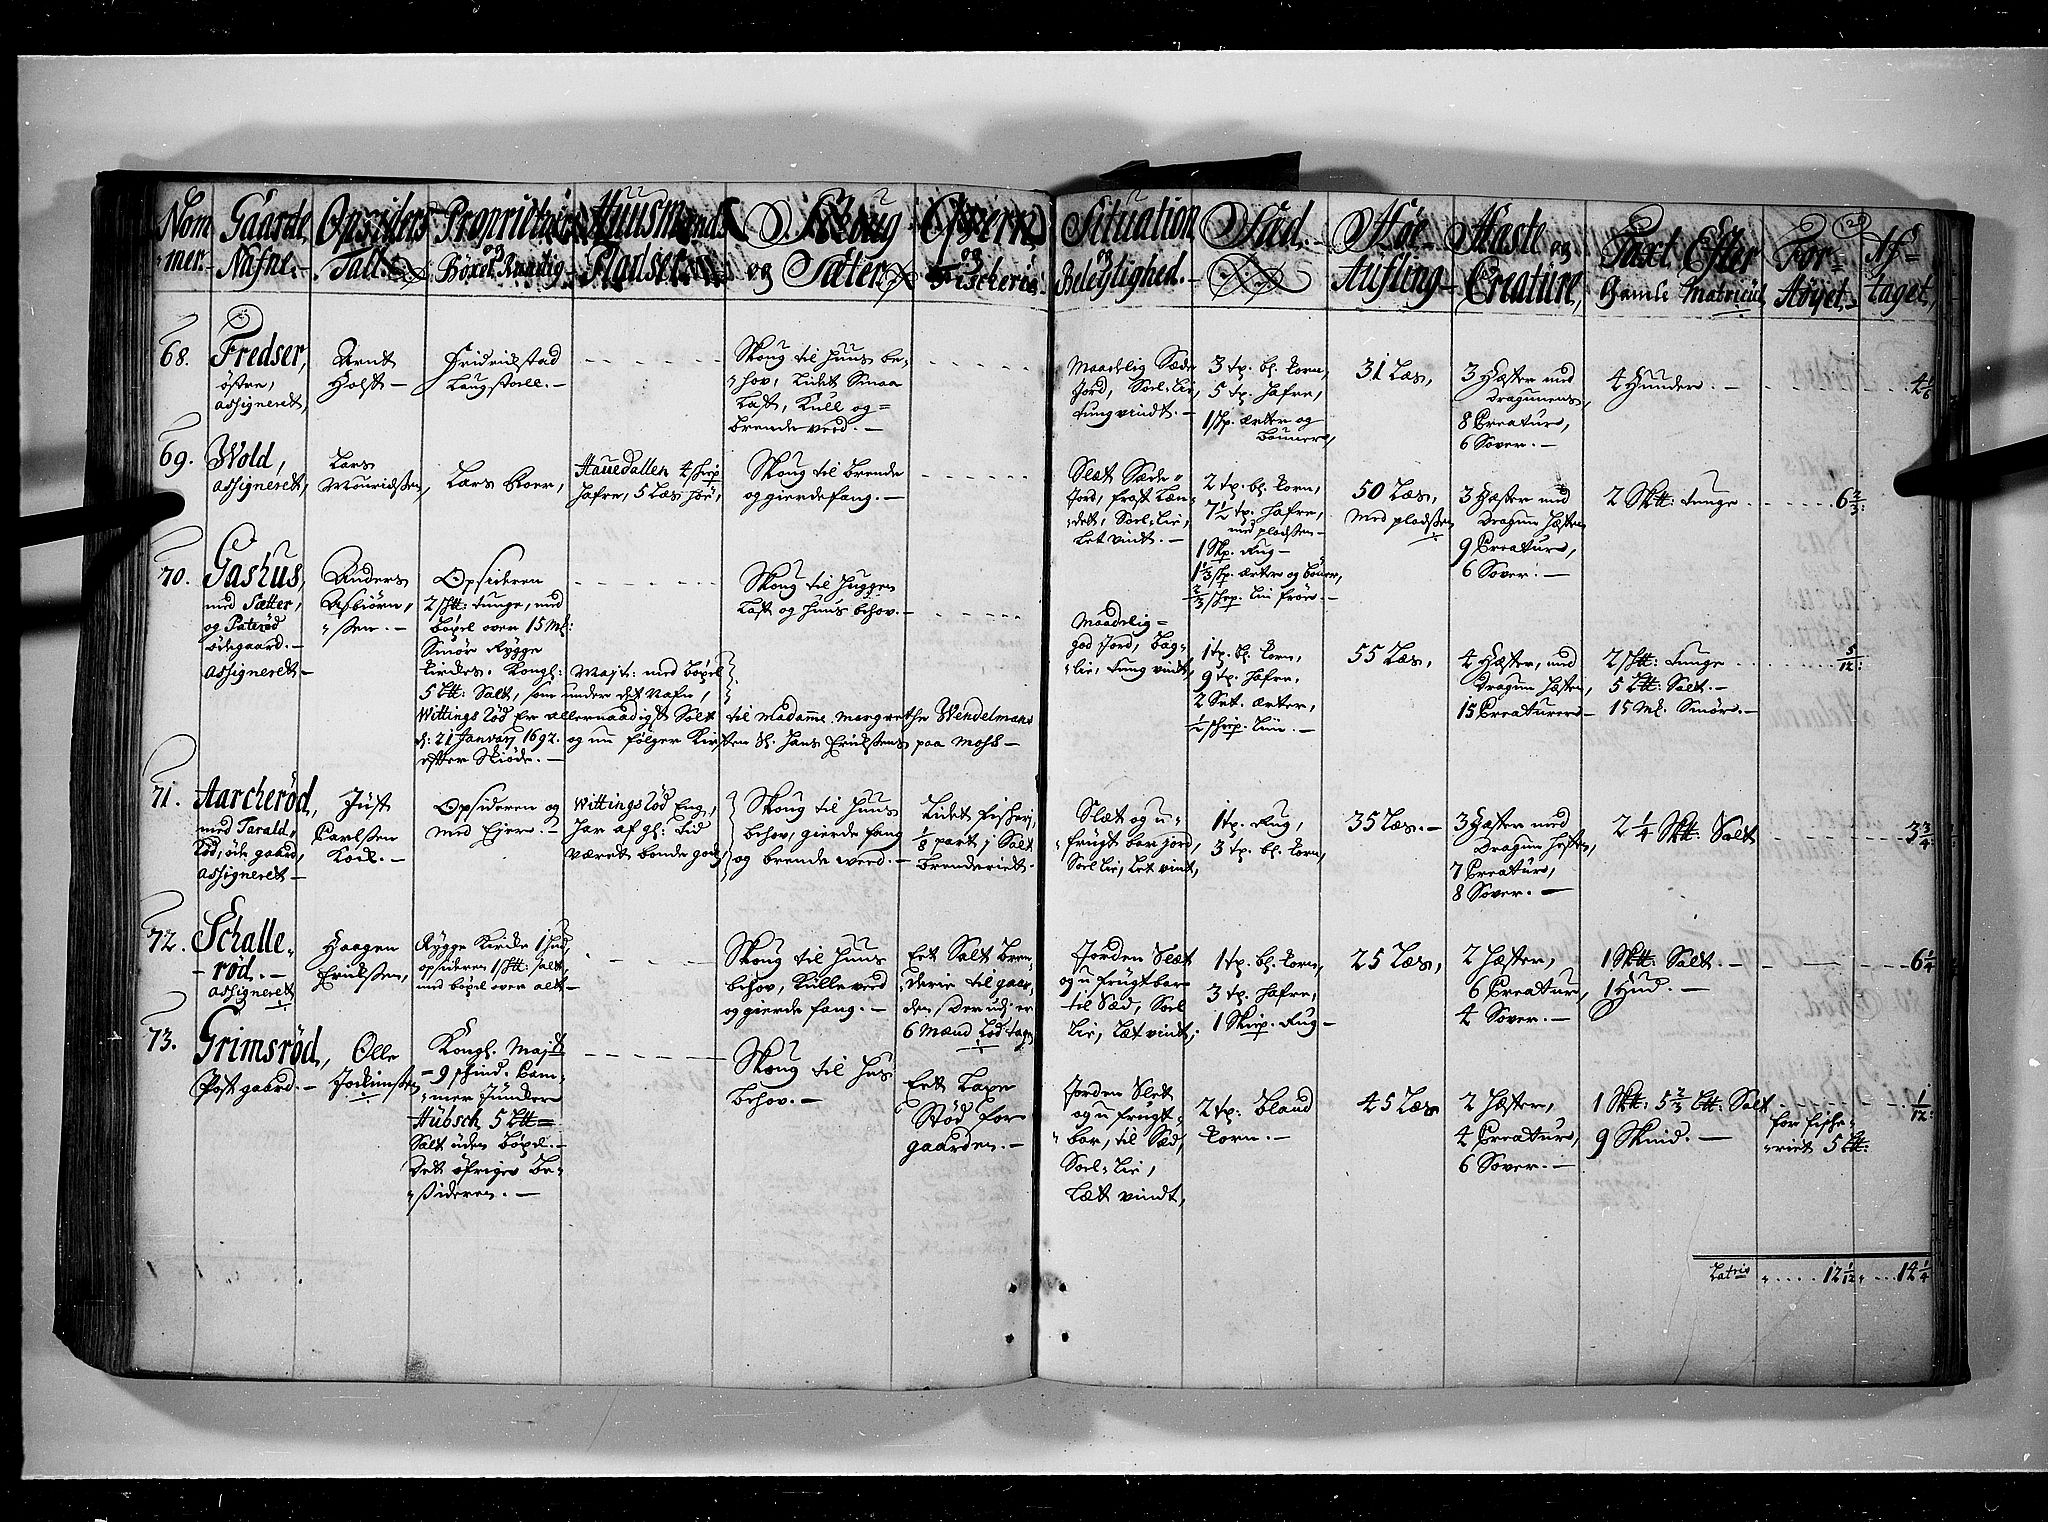 Nom
mer.
Gaarde
Nafne.
Opsidders
Tall.
Proprietairer
og Böxel Raadig
Huusmænds
Pladser.
Skoug
og Sæter
Qværn
og Fischerie.
Situation
og Beleylighed.
Sæd.
Höe-
Aufling
Hæste og
Creature,
Taxt Efter
Gamle Matricul
For-
höyet.
Af-
taget,
68.
Fredser,
östre,
assigneret,
Arnt
Holst —
Fridrichstad
Laugstoell. —
Skoug til Huus be-
hov, Lidet Smaa
Last, Kull og
brende veed. —
Maadelig Sæde
Jord, Soel-Lie,
tungvindt. —
3 tp. bl. Korn,
5 tp. Hafre,
1 skp. erter og
bönner,
31 Læs,
3 Hæster med
Dragunens,
8 Creature,
6 Sover. —
4 Hunder. —
4 1/6
69.
Wold,
assigneret,
Lars
Mouridssen,
Lars Boer,
Hauedallen 4 skiep
Hafre, 5 Læs Höe,
Skoug til brende
og gierdefang. —
Slæt Sæde
Jord, frost Læn-
det, Soel-Lie,
Let vindt. —
2 tp. bl. Korn,
7 1/2 tp. Hafre,
med pladssen —
1 Skp. Rug —
1 1/3 skp. erter og bönner,
2/3 skiep. Lin fröe. —
50 Læs,
Med pladssen
3 Hæster med
Dragun Hæsten
9 Creature,
6 Sover. —
2 Skt: tunge
6 2/3:
70.
Gashus,
med Sætter,
og Pateröd
ödegaard. —
assigneret —
Anders
Asbiörn-
ssen. —
Opsidderen
2 skt: tunge, med
böxel over 15 Ml:
Smör Rygge
Kirke. Kongl: Mayt: med böxel
5 Lt: Salt, som under det Nafn,
Wittings Löd Er allernaadigst Solt til Madamme Margrethe Wendelmans
d: 21 January 1692. og nu fölger Kirsten Sl. Hans Erichssens paa Moss —
efter Skiöde. —
Skoug til Huggen
Last og Huus behov. —
Maadelig
god Jord, Bag-
lie, tung vindt,
1 tp. bl. Korn,
9 tp. Hafre,
2 Set. erter,
1/2 skiep. Lin. —
55 Læs,
4 Hæster, med
Dragun Hæsten,
15 Creaturer —
2 skt: Tunge
5 Lt: Salt. —
15 Ml. Smör. —
5/12:
71.
Aarcheröd,
med Tarald-
röd, öde gaard,
assigneret —
Just
Carlssen
Kodl. —
Opsidderen og
med Ejere. —
Wittings Löd Eng,
Har af gl: Tid
været bonde gods
Skoug til Huus
behov, gierde fang
og brende weed. —
Lidet fischeri,
1/8 part i Salt
brenderiet.
Slæt og u-
frugt bar jord,
Soel Lie, Let vindt,
1 tp. Rug,
3 tp. bl. Korn,
35 Læs. —
3 Hæster med
Dragun Hesten,
7 Creature,
8 Sover. —
2 1/4 Skt: Salt
3 3/4:
72.
Schalle-
röd. —
assigneret
Haagen
Erichssen,
Rygge Kirke 1 Hud,
opsideren 1 skt: salt,
med böxel over alt —
Skoug til Huus
behov, Kulle veed
og gierde fang. —
Eet Salt bren-
derie til gaar-
den, Derudi er
6 Mænd Lod tagr.
Jorden Slæt
og u frugtbar
til Sæd, Soel
Lie, Læt vindt;
1 tp. bl. Korn,
3 tp. Hafre,
1 Skiep. Rug —
25 Læs,
2 Hæster,
6 Creature,
4 Sover. —
1 Skt: Salt. —
1 Hud. —
6 1/4
73.
Grimsröd,
Post gaard. —
Olle
Jochimssen
Kongl. Mayt
9 skind. Cam-
mer Junker
Hübsch 5 Lt
Salt uden böxel. —
Det öfriges be-
sideren. —
Skoug til Hus
behov. —
Eet Laxe
Stöd for
gaarden. —
Jorden Slet
og u frugt-
bar, til Sæd,
Soel-Lie,
Læt vindt,
2 tp: bland
Korn. —
45 Læs
2 Hæster,
4 Creature,
6 Sover. —
1 Skt: 5 2/3 Lt: Salt
9 Skind. —
for fische-
riet 5 Lt:
1/12:
Latris
12 1/12
14 1/4